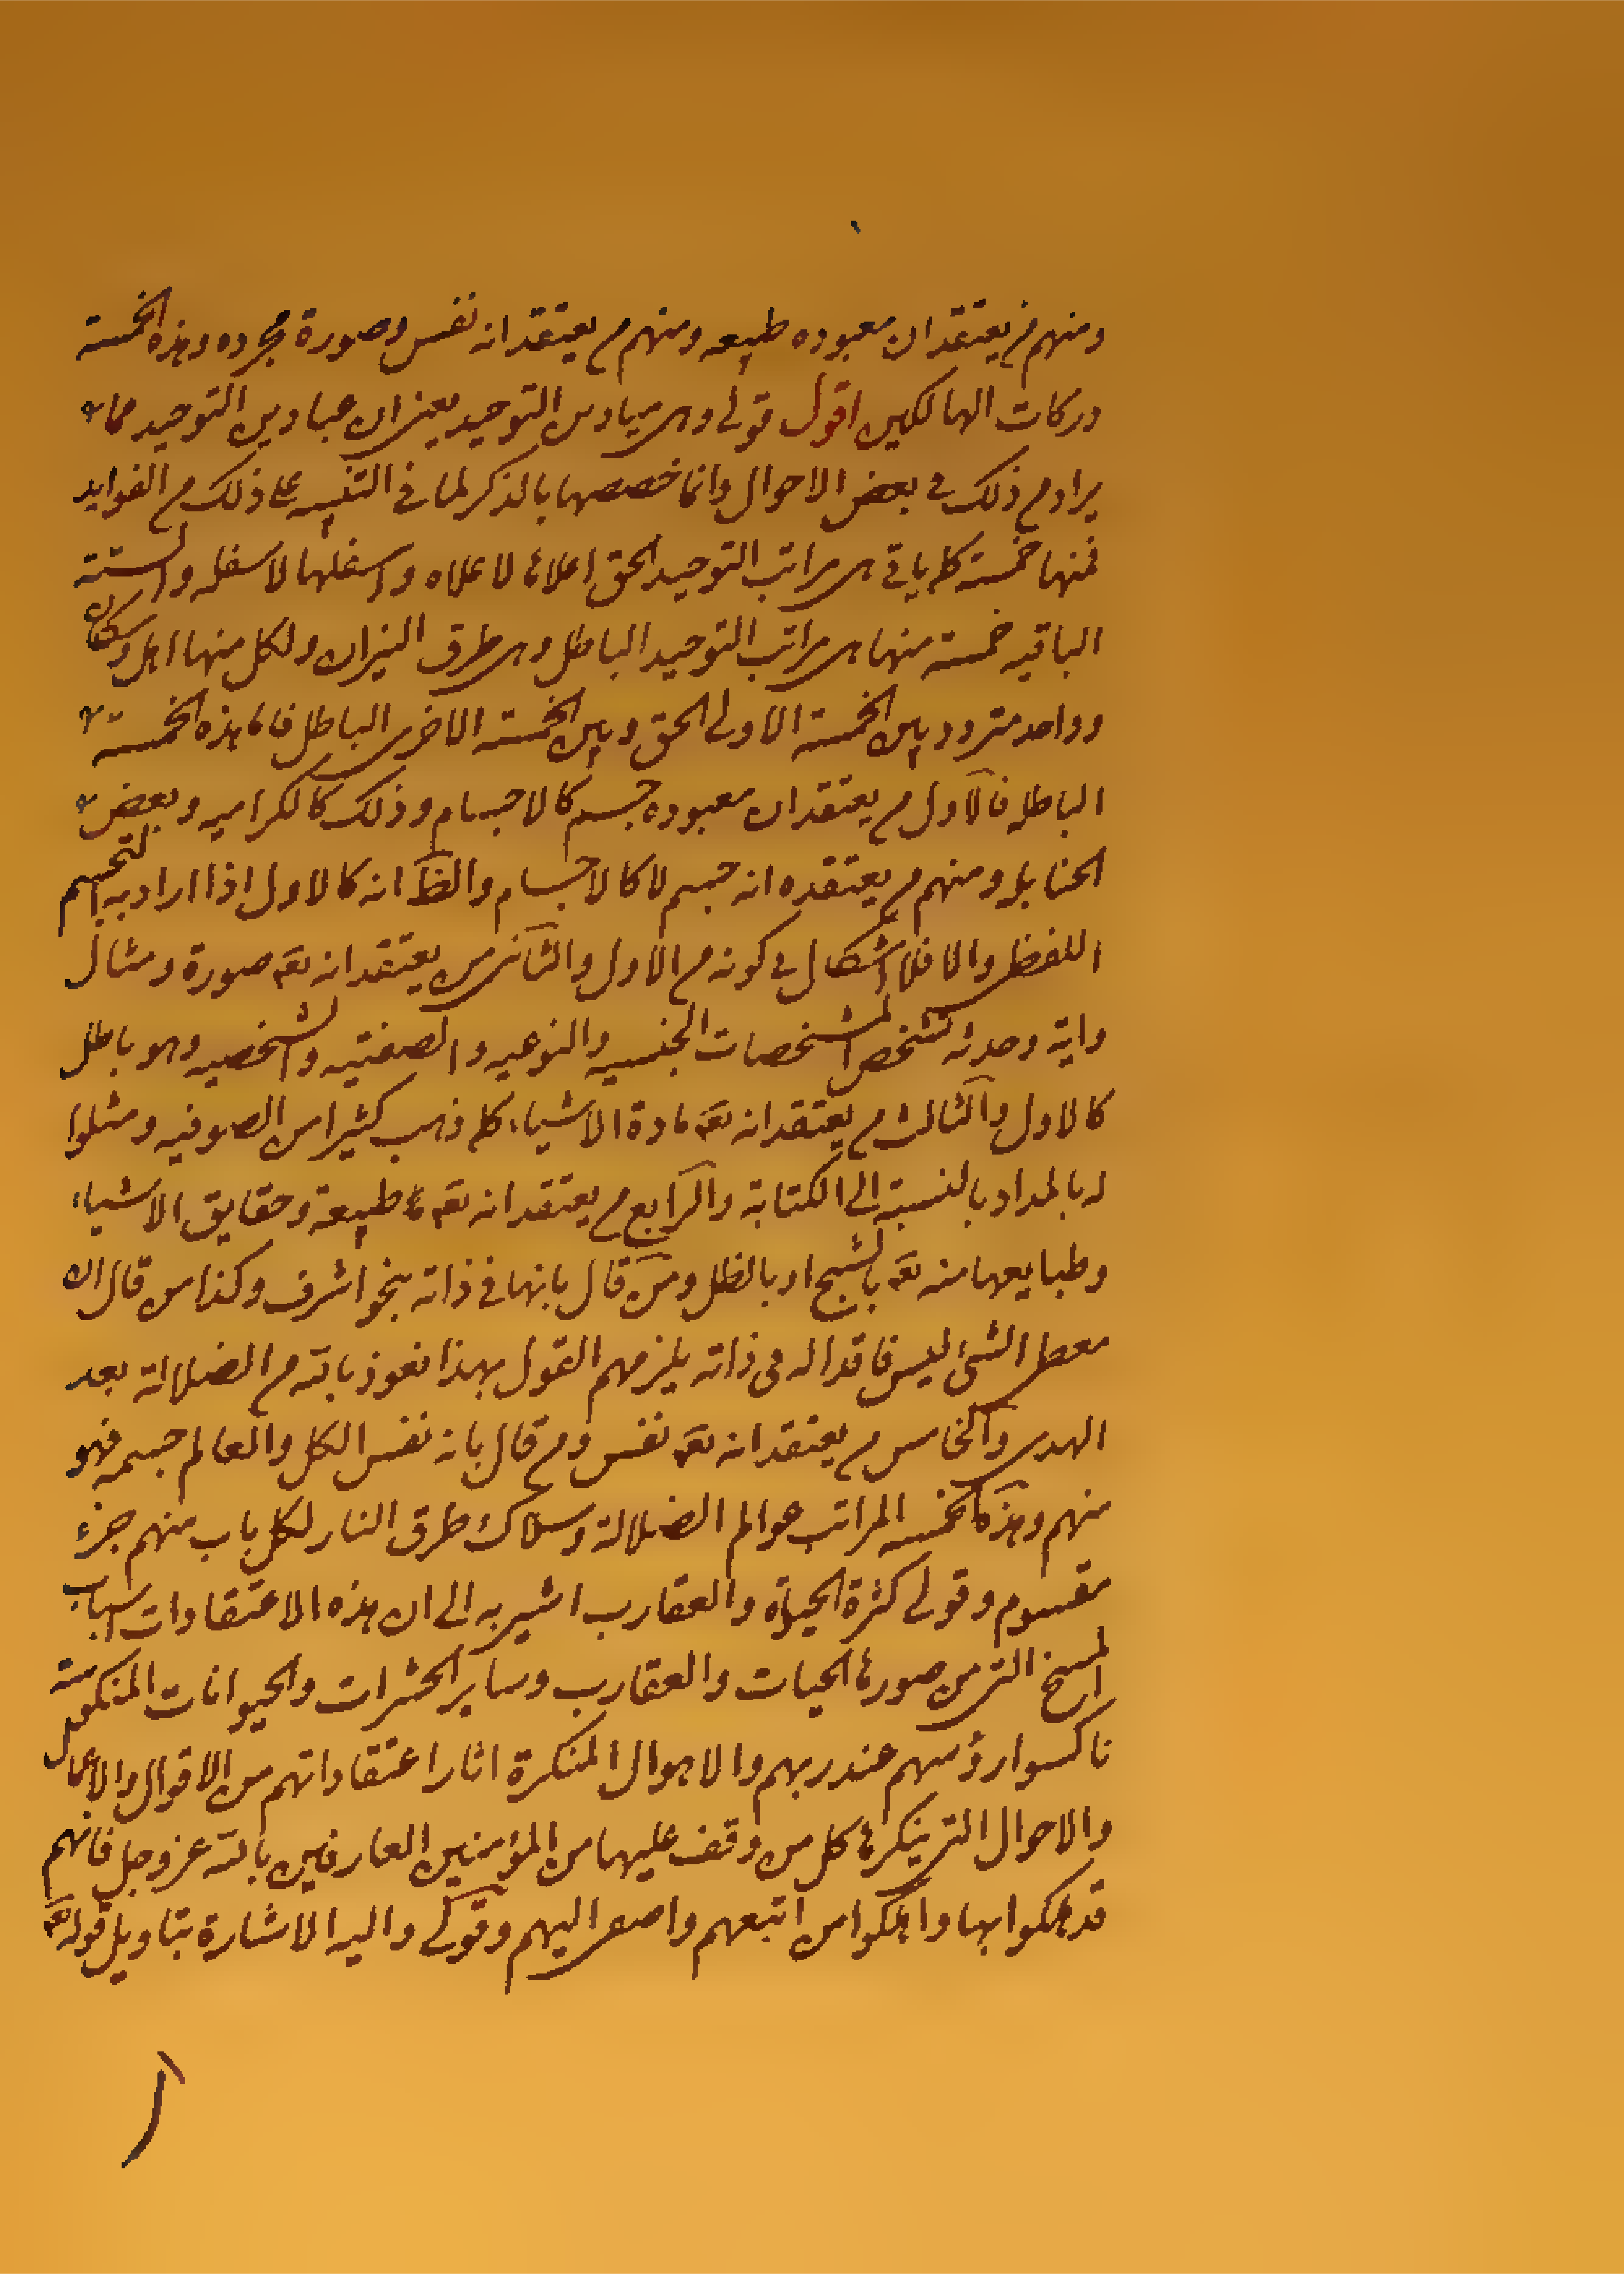 ومنهم من يعتقد ان معبوده طبيعه ومنهم م يعتقد انه نفس وصورة مجرده وهذه الخمسة
دركات الهالكين اقول قولي وهي مبادي التوحيد يعني ان مبادي التوحيد مما
يراد م ذلك في بعض الاحوال وانما خصصها بالذكر لما في التنبيه على ذلك م الفوايد
فمنها خمسة كما ياتي هي مراتب التوحيد الحق اعلاها لاعلاه واسفلها لاسفله والستة
الباقيه خمسة منها هي مراتب التوحيد الباطل وهي طرق النيران ولكل منها اهل وسكان
وواحد متردد بين الخمسة الاولى الحق وبين الخمسة الاخرى الباطل فاما هذه الخمسة
الباطله فالاول م يعتقد ان معبوده جسم كالاجسام وذلك كالكراميه وبعض
الحنابله ومنهم م يعتقده انه جسم لا كالاجسام والظ انه كالاول اذا اراد به التجسم
اللفظي والا فلا اشكال في كونه م الاول والثاني من يعتقد انه تعه صورة ومثال
واية وحدته تشخص المشخصات الجنسيه والنوعيه والصفتيه والشخصيه وهو باطل
كالاول والثالث م يعتقد انه تعه مادة الاشياء كما ذهب كثيرا من الصوفيه ومثلوا
له بالمداد بالنسبة الى الكتابة والرابع م يعتقد انه تعه طبيعة وحقايق الاشياء
وطبايعها منه تعه بالشبح او بالظل ومن قال بانها في ذاته بنحو اشرف وكذا من قال ان
معطي الشئ ليس فاقدا له في ذاته يلزمهم القول بهذا نعوذ بالله م الضلالة بعد
الهدى والخامس م يعتقد انه تعه نفس وم قال بانه نفس الكل والعالم جسمه فهو
منهم وهذه الخمسه المراتب عوالم الضلالة وسلاك طرق النار لكل باب منهم جزء
مقسوم وقولي كثرة الحياة والعقارب اشير به الى ان هذه الاعتقادات اسباب
المسخ التي من صورها الحيات والعقارب وساير الحشرات والحيوانات المنكوسة
ناكسوا رؤسهم عند ربهم والاهوال المنكرة اثار اعتقاداتهم من الاقوال والاعمال
والاحوال التي ينكرها كل من وقف عليها من المؤمنين العارفين بالله عز وجل فانهم
قد هلكوا بها واهلكوا من اتبعهم واصغى اليهم وقولي واليه الاشارة بتاويل قوله تعه